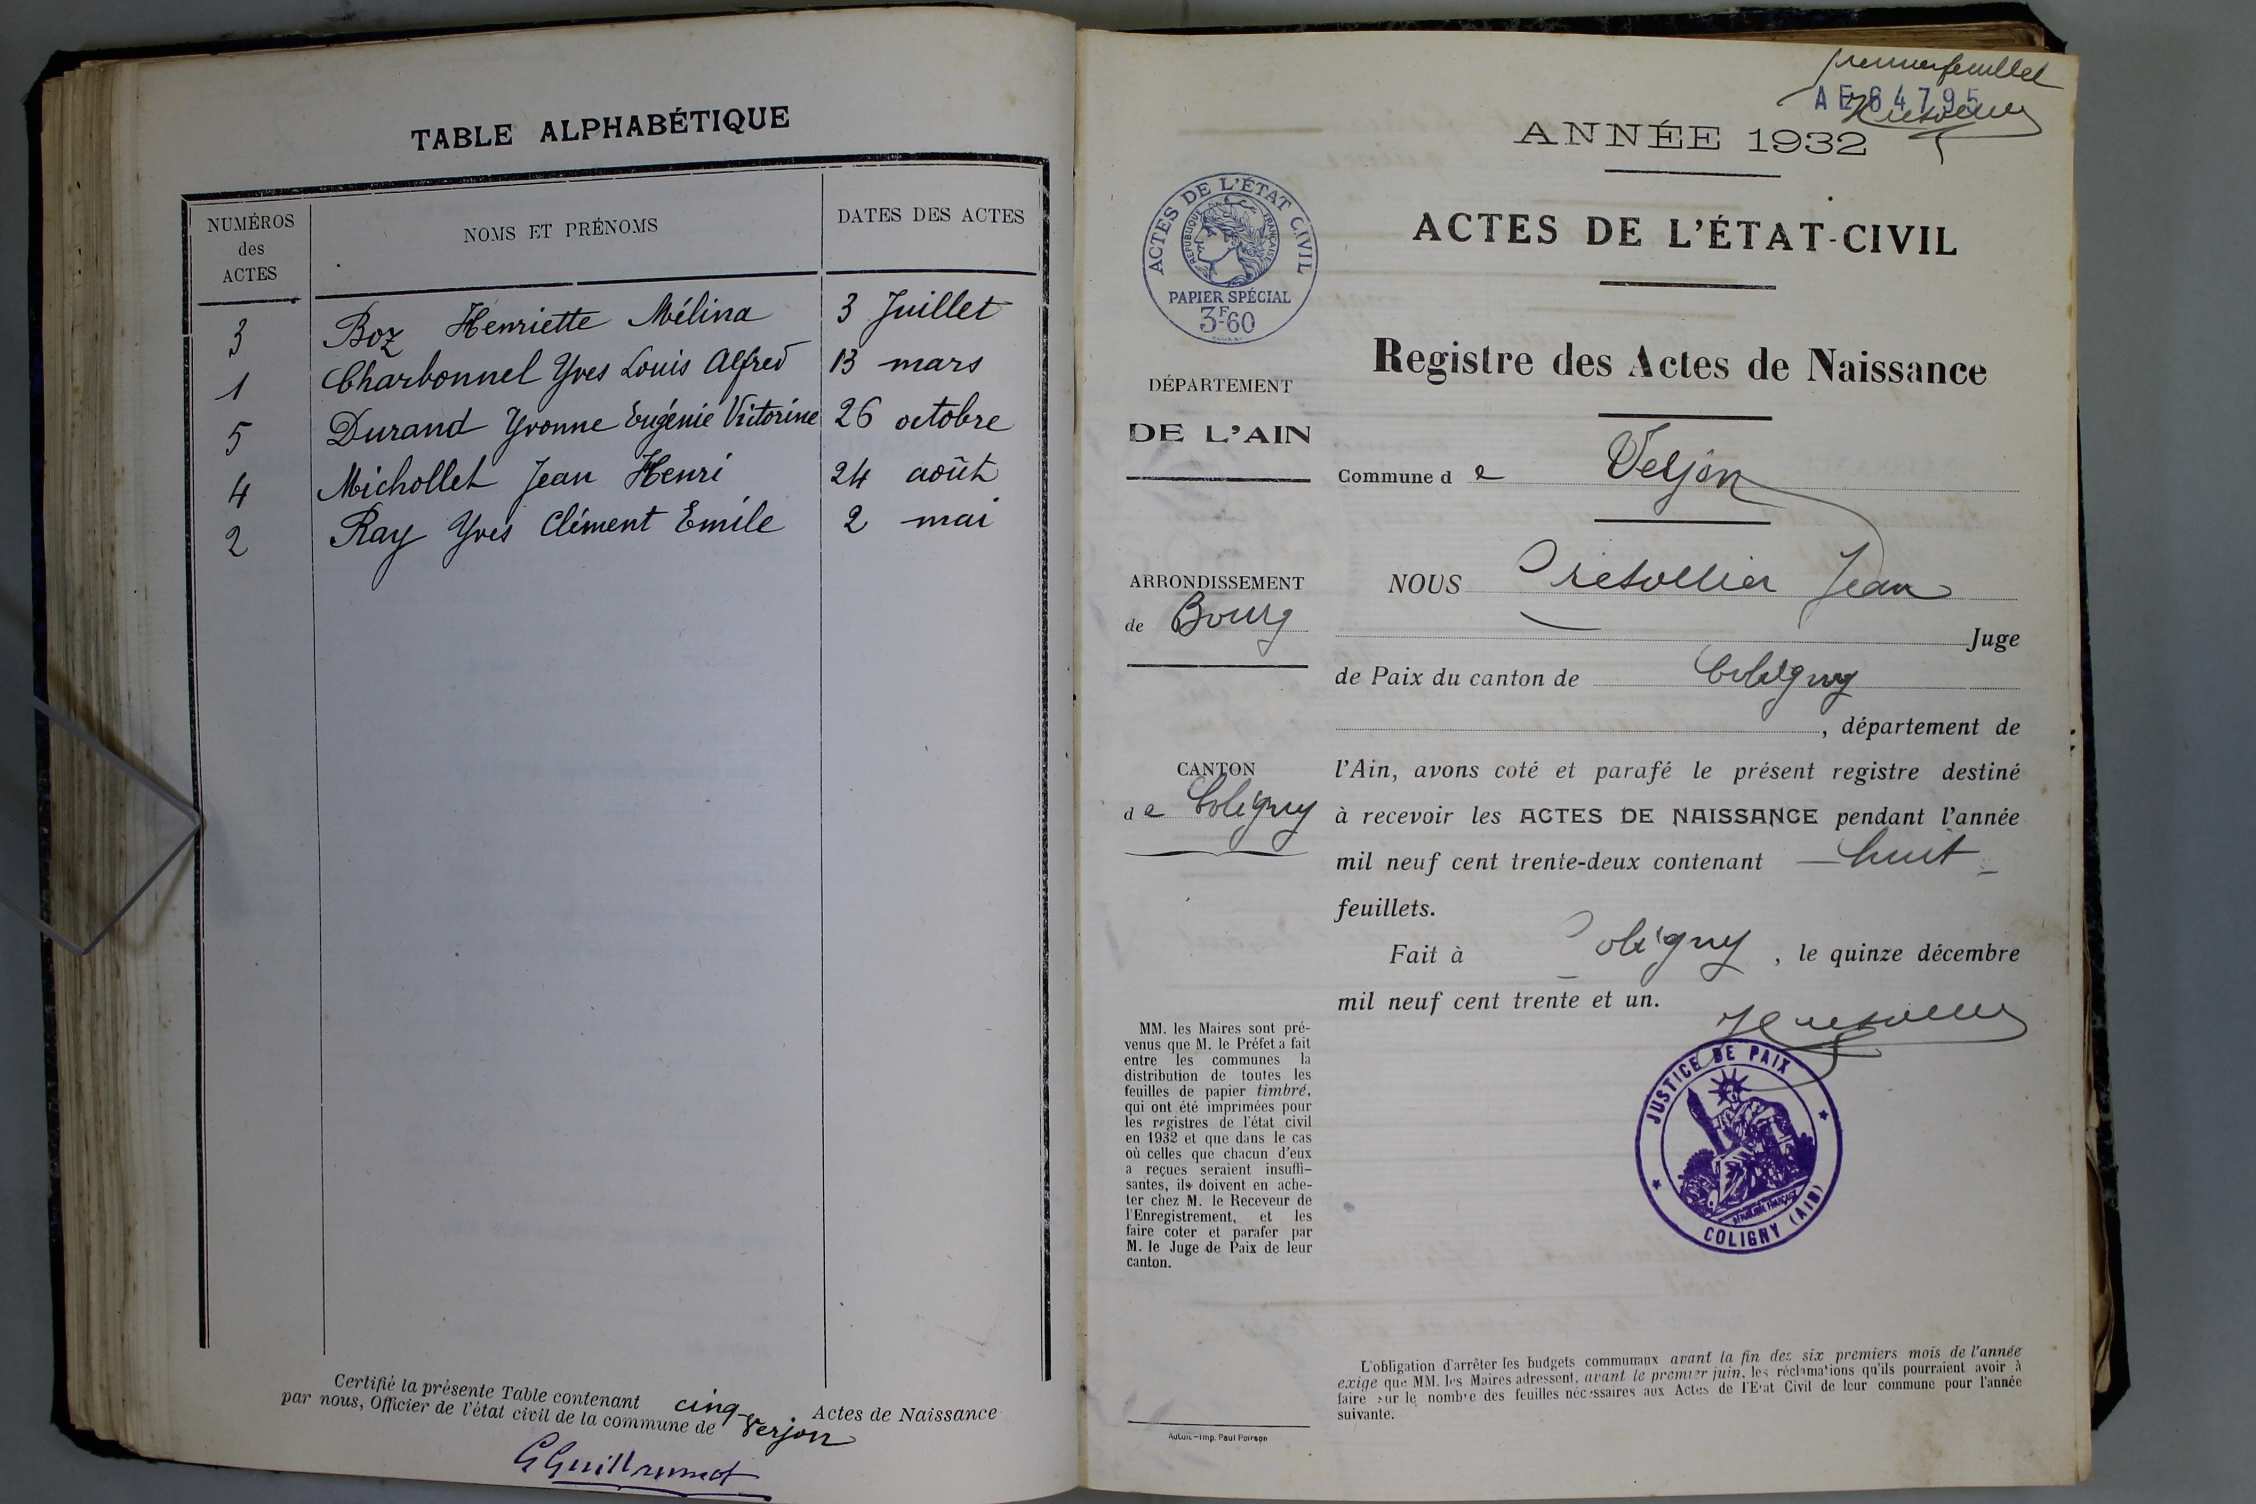 TABLE ALPHABÉTIQUE
NUMÉROS
des
ACTES
NOMS ET PRÉNOMS
DATES DES ACTES
3 Boz Henriette Mélina 3 Juillet
1 Charbonnel Yves Louis Alfred 13 mars
5 Durand Yvonne Eugénie Victorine 26 octobre
4 Michollet Jean Henri 24 août
2 Ray Yves Clément Emile 2 mai
Certifié la présente Table contenant cinq Actes de Naissance
par nous, Officier de l'état civil de la commune de Verjon
GGuillrumot
premier feuillet
AE 64795
ANNÉE 1932
ACTES DE L'ÉTAT-CIVIL
Registre des Actes de Naissance
ACTES DE L'ÉTAT CIVIL
RÉPUBLIQUE FRANÇAISE
PAPIER SPÉCIAL
3F-60
DÉPARTEMENT
DE L'AIN
ARRONDISSEMENT
de Bourg
CANTON
de Coligny
MM. les Maires sont pré-
venus que M. le Préfet a fait
entre les communes la
distribution de toutes les
feuilles de papier timbré,
qui ont été imprimées pour
les registres de l'état civil
en 1932 et que dans le cas
où celles que chacun d'eux
a reçues seraient insuffi-
santes, ils doivent en ache-
ter chez M. le Receveur de
l'Enregistrement, et les
faire coter et parafer par
M. le Juge de Paix de leur
canton.
Imp. Paul Poirson
Commune de Verjon
NOUS Jean
Juge
de Paix du canton de Coligny
, département de
l'Ain, avons coté et parafé le présent registre destiné
à recevoir les ACTES DE NAISSANCE pendant l'année
mil neuf cent trente-deux contenant — huit —
feuillets.
Fait à Coligny, le quinze décembre
mil neuf cent trente et un.
JUSTICE DE PAIX
COLIGNY (AIN)
L'obligation d'arrêter les budgets communaux avant la fin des six premiers mois de l'année
exige que MM. les Maires adressent, avant le premier juin, les réclamations qu'ils pourraient avoir à
faire sur le nombre des feuilles nécessaires aux Actes de l'Etat Civil de leur commune pour l'année
suivante.